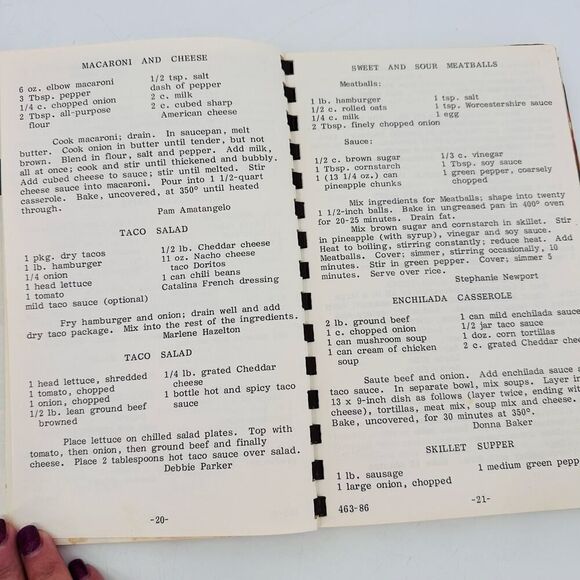 MACARONI AND CHEESE
6 oz. elbow macaroni 1/2 tsp. salt
3 Tbsp. pepper dash of pepper
1/4 c. chopped onion 2 c. milk
2 Tbsp. all-purpose 2 c. cubed sharp
flour American cheese
Cook macaroni; drain. In saucepan, melt
butter. Cook onion in butter until tender, but not
brown. Blend in flour, salt and pepper. Add milk,
all at once; cook and stir until thickened and bubbly.
Add cubed cheese to sauce; stir until melted. Stir
cheese sauce into macaroni. Pour into 1 1/2-quart
casserole. Bake, uncovered, at 350° until heated
through.
Pam Amatangelo
TACO SALAD
1 pkg. dry tacos 1/2 lb. Cheddar cheese
1 lb. hamburger 11 oz. Nacho cheese
1/4 onion taco Doritos
1 head lettuce 1 can chili beans
1 tomato Catalina French dressing
mild taco sauce (optional)
Fry hamburger and onion; drain well and add
dry taco package. Mix into the rest of the ingredients.
Marlene Hazelton
TACO SALAD
1 head lettuce, shredded 1/4 lb. grated Cheddar
1 tomato, chopped cheese
1 onion, chopped 1 bottle hot and spicy taco
1/2 lb. lean ground beef sauce
browned
Place lettuce on chilled salad plates. Top with
tomato, then onion, then ground beef and finally
cheese. Place 2 tablespoons hot taco sauce over salad.
Debbie Parker
-20-
SWEET AND SOUR MEATBALLS
Meatballs:
1 lb. hamburger 1 tsp. salt
1/2 c. rolled oats 1 tsp. Worcestershire sauce
1/4 c. milk 1 egg
2 Tbsp. finely chopped onion
Sauce:
1/2 c. brown sugar 1/3 c. vinegar
1 Tbsp. cornstarch 1 Tbsp. soy sauce
1 (13 1/4 oz.) can 1 green pepper, coarsely
pineapple chunks chopped
Mix ingredients for Meatballs; shape into twenty
1 1/2-inch balls. Bake in ungreased pan in 400° oven
for 20-25 minutes. Drain fat.
Mix brown sugar and cornstarch in skillet. Stir
in pineapple (with syrup), vinegar and soy sauce.
Heat to boiling, stirring constantly; reduce heat. Add
Meatballs. Cover; simmer, stirring occasionally, 10
minutes. Stir in green pepper. Cover; simmer 5
minutes. Serve over rice.
Stephanie Newport
ENCHILADA CASSEROLE
2 lb. ground beef 1 can mild enchilada sauce
1 c. chopped onion 1/2 jar taco sauce
1 can mushroom soup 1 doz. corn tortillas
1 can cream of chicken 2 c. grated Cheddar
soup
Saute beef and onion. Add enchilada sauce
taco sauce. In separate bowl, mix soups. Layer in
13 x 9-inch dish as follows (layer twice, ending with
cheese), tortillas, meat mix, soup mix and cheese.
Bake, uncovered, for 30 minutes at 350°.
Donna Baker
SKILLET SUPPER
1 lb. sausage 1 medium green
1 large onion, chopped
-21-
463-86